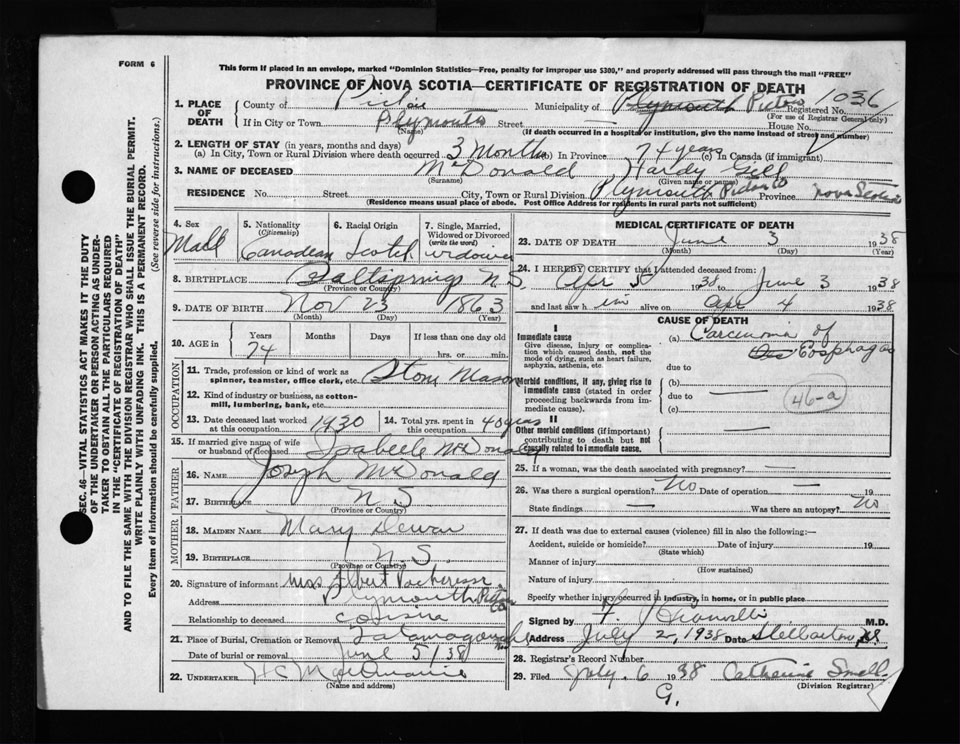 FORM 6
This form if placed in an envelope, marked "Dominion Statistics—Free, penalty for improper use $300," and properly addressed will pass through the mail "FREE"
PROVINCE OF NOVA SCOTIA—CERTIFICATE OF REGISTRATION OF DEATH
1. PLACE OF DEATH County of Pictou Municipality of Plymouth Pictou Registered No. 1036
(For use of Registrar General only)
If in City or Town Plymouth Street House No.
(Name) (If death occurred in a hospital or institution, give the name instead of street and number)
2. LENGTH OF STAY (in years, months and days)
(a) In City, Town or Rural Division where death occurred 3 Months (b) In Province 74 years (c) In Canada (if immigrant)
3. NAME OF DECEASED McDonald Hardy Gill
(Surname) (Given name or names)
RESIDENCE No. Street City, Town or Rural Division Plymouth Pictou Co Province Nova Scotia
(Residence means usual place of abode. Post Office Address for residents in rural parts not sufficient)
4. Sex Male
5. Nationality (Citizenship) Canadian
6. Racial Origin Scotch
7. Single, Married, Widowed or Divorced (write the word) widower
8. BIRTHPLACE Saltsprings N.S.
(Province or Country)
9. DATE OF BIRTH Nov 23 1863
(Month) (Day) (Year)
10. AGE in Years Months Days If less than one day old
74 hrs. or min.
OCCUPATION
11. Trade, profession or kind of work as spinner, teamster, office clerk, etc. Stone Mason
12. Kind of industry or business, as cotton-mill, lumbering, bank, etc.
13. Date deceased last worked at this occupation 1930
14. Total yrs. spent in this occupation 40 years
15. If married give name of wife or husband of deceased Isabelle McDonald
FATHER
16. NAME Joseph McDonald
17. BIRTHPLACE N S
(Province or Country)
MOTHER
18. MAIDEN NAME Mary Dewar
19. BIRTHPLACE N. S.
(Province or Country)
20. Signature of informant Mrs Albert
Address Plymouth Pictou Co
Relationship to deceased cousin
21. Place of Burial, Cremation or Removal Tatamagouche
Date of burial or removal June 5/38
22. UNDERTAKER
(Name and address)
MEDICAL CERTIFICATE OF DEATH
23. DATE OF DEATH June 3 1938
(Month) (Day) (Year)
24. I HEREBY CERTIFY that I attended deceased from:
Apr 1938 to June 3 1938
and last saw h im alive on Apr 4 1938
CAUSE OF DEATH
I
Immediate cause
Give disease, injury or complication which caused death, not the mode of dying, such as heart failure, asphyxia, asthenia, etc.
(a) Carcinoma of
Eosphagus
due to
Morbid conditions, if any, giving rise to immediate cause (stated in order proceeding backwards from immediate cause).
(b)
due to
(c)
46-a
II
Other morbid conditions (if important) contributing to death but not causally related to immediate cause.
25. If a woman, was the death associated with pregnancy?
26. Was there a surgical operation? No Date of operation 19
State findings Was there an autopsy? No
27. If death was due to external causes (violence) fill in also the following:—
Accident, suicide or homicide? Date of injury 19
(State which)
Manner of injury
(How sustained)
Nature of injury
Specify whether injury occurred in industry, in home, or in public place
Signed by M.D.
Address July 2, 1938 Date Stellarton NS
28. Registrar's Record Number
29. Filed July 6 1938 Catherine Small
(Division Registrar)
G.
SEC. 46—VITAL STATISTICS ACT MAKES IT THE DUTY
OF THE UNDERTAKER OR PERSON ACTING AS UNDERTAKER TO OBTAIN ALL THE PARTICULARS REQUIRED
IN THE "CERTIFICATE OF REGISTRATION OF DEATH"
AND TO FILE THE SAME WITH THE DIVISION REGISTRAR WHO SHALL ISSUE THE BURIAL PERMIT.
WRITE PLAINLY WITH UNFADING INK. THIS IS A PERMANENT RECORD.
Every item of information should be carefully supplied. (See reverse side for instructions.)